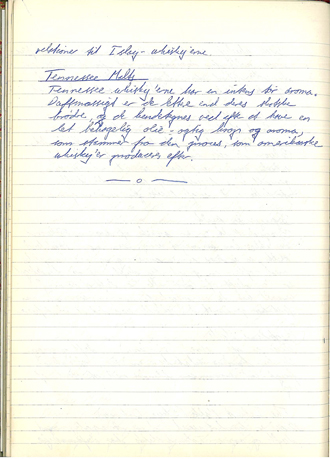 relationer til Islay-whisky'erne.
Tennessee Malts
Tennessee whisky'erne har en intens tør aroma.
Duftmæssigt er de lette end deres skotske
brødre, og de kendetegnes ved ofte at have en
let behagelig olie-agtig smag og aroma,
som stammer fra den proces, som amerikanske
whisky'er produceres efter.